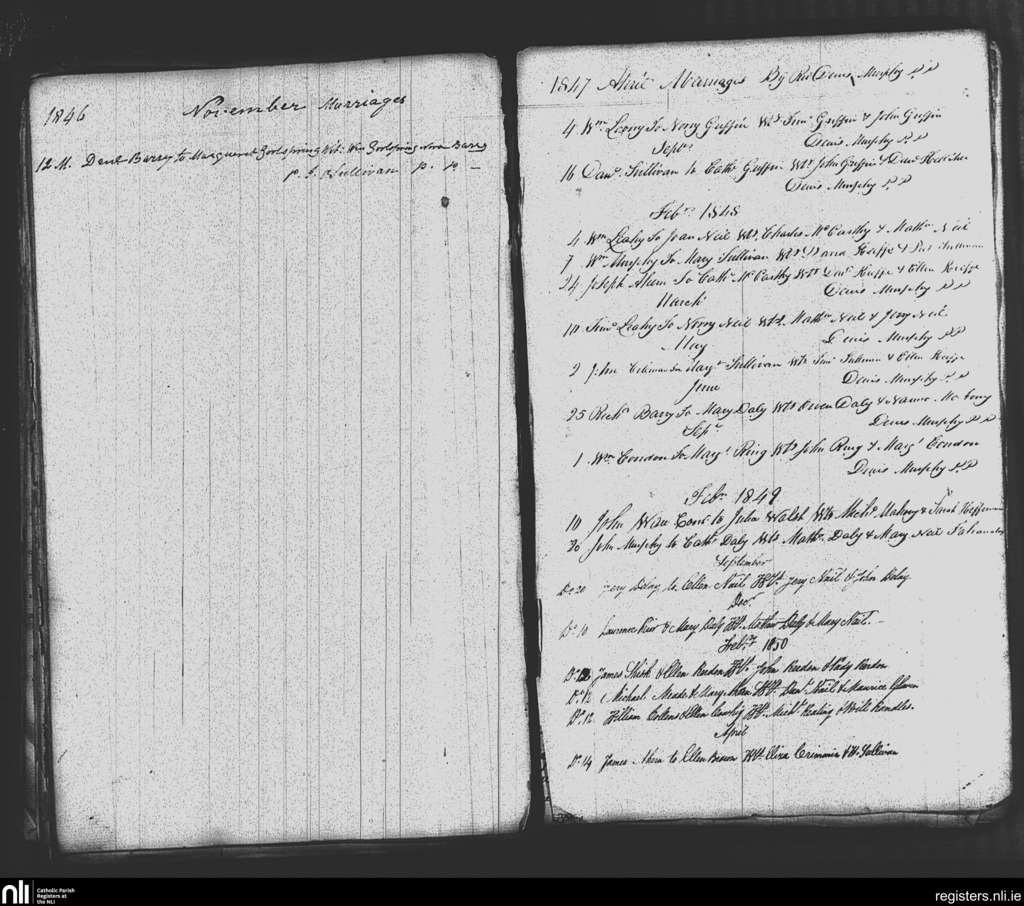 1846 November Marriages
12 M. Danl Barry to Margueret Wits Wm Nora Barry
P. J. Sullivan P. P. —
1847 Marriages By Rev Denis Murphy PP
4 Wm Leary To Nory Griffin Wts Timo Griffin & John Griffin
Septr Denis Murphy PP
16 Danl Sullivan to Cathe Griffin Wts John Griffin & Danl
Denis Murphy PP
Feby 1848
4 Wm Leahy To Joan Neil Wts Charles McCarthy & Mathw Neil
7 Wm Murphy To Mary Sullivan Wts David Keeffe & Sullivan
24 Joseph Ahern To Cathe McCarthy Wts Danl Keeffe & Ellen Keeffe
March Denis Murphy PP
10 Timo Leahy To Norry Neil Wts Mathw Neil & Jery Neil
May Denis Murphy PP
2 John To Margt Sullivan Wts Timo Sullivan & Ellen Keeffe
June Denis Murphy PP
25 Richd Barry To Mary Daly Wts Owen Daly &
Sepr Denis Murphy PP
1 Wm Condon To Margt Ring Wts John Ring & Margt Condon
Denis Murphy PP
Feby 1849
10 John to Julia Walsh Wts Michl Mahony &
20 John Murphy to Cathe Daly Wts Mathw Daly & Mary Neil
September
Do 20 Jery Delay to Ellen Nail Wts Jery Nail & John Delay
Decr
Do 10 Laurence & Mary Daly Wts Mathew Daly & Mary Nail. —
Feby 1850
Do 12 James & Ellen Reardon Wts John Reardon & Pady Reardon
Do 12 Michael Meade & Mary Wts Danl Nail & Maurice
Do 12 William Collens & Ellen Wts Michl Keating &
April
Do 14 James Ahern to Ellen Brown Wts Eliza & Wm Sullivan
nli
Catholic Parish
Registers at
the NLI
registers.nli.ie